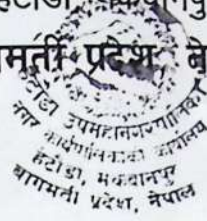 हेटौंडा
मती प्रदेश, ने
हेटौंडा उपमहानगरपालिका
नगर कार्यपालिकाको कार्यालय
हेटौंडा, मकवानपुर
बागमती प्रदेश, नेपाल